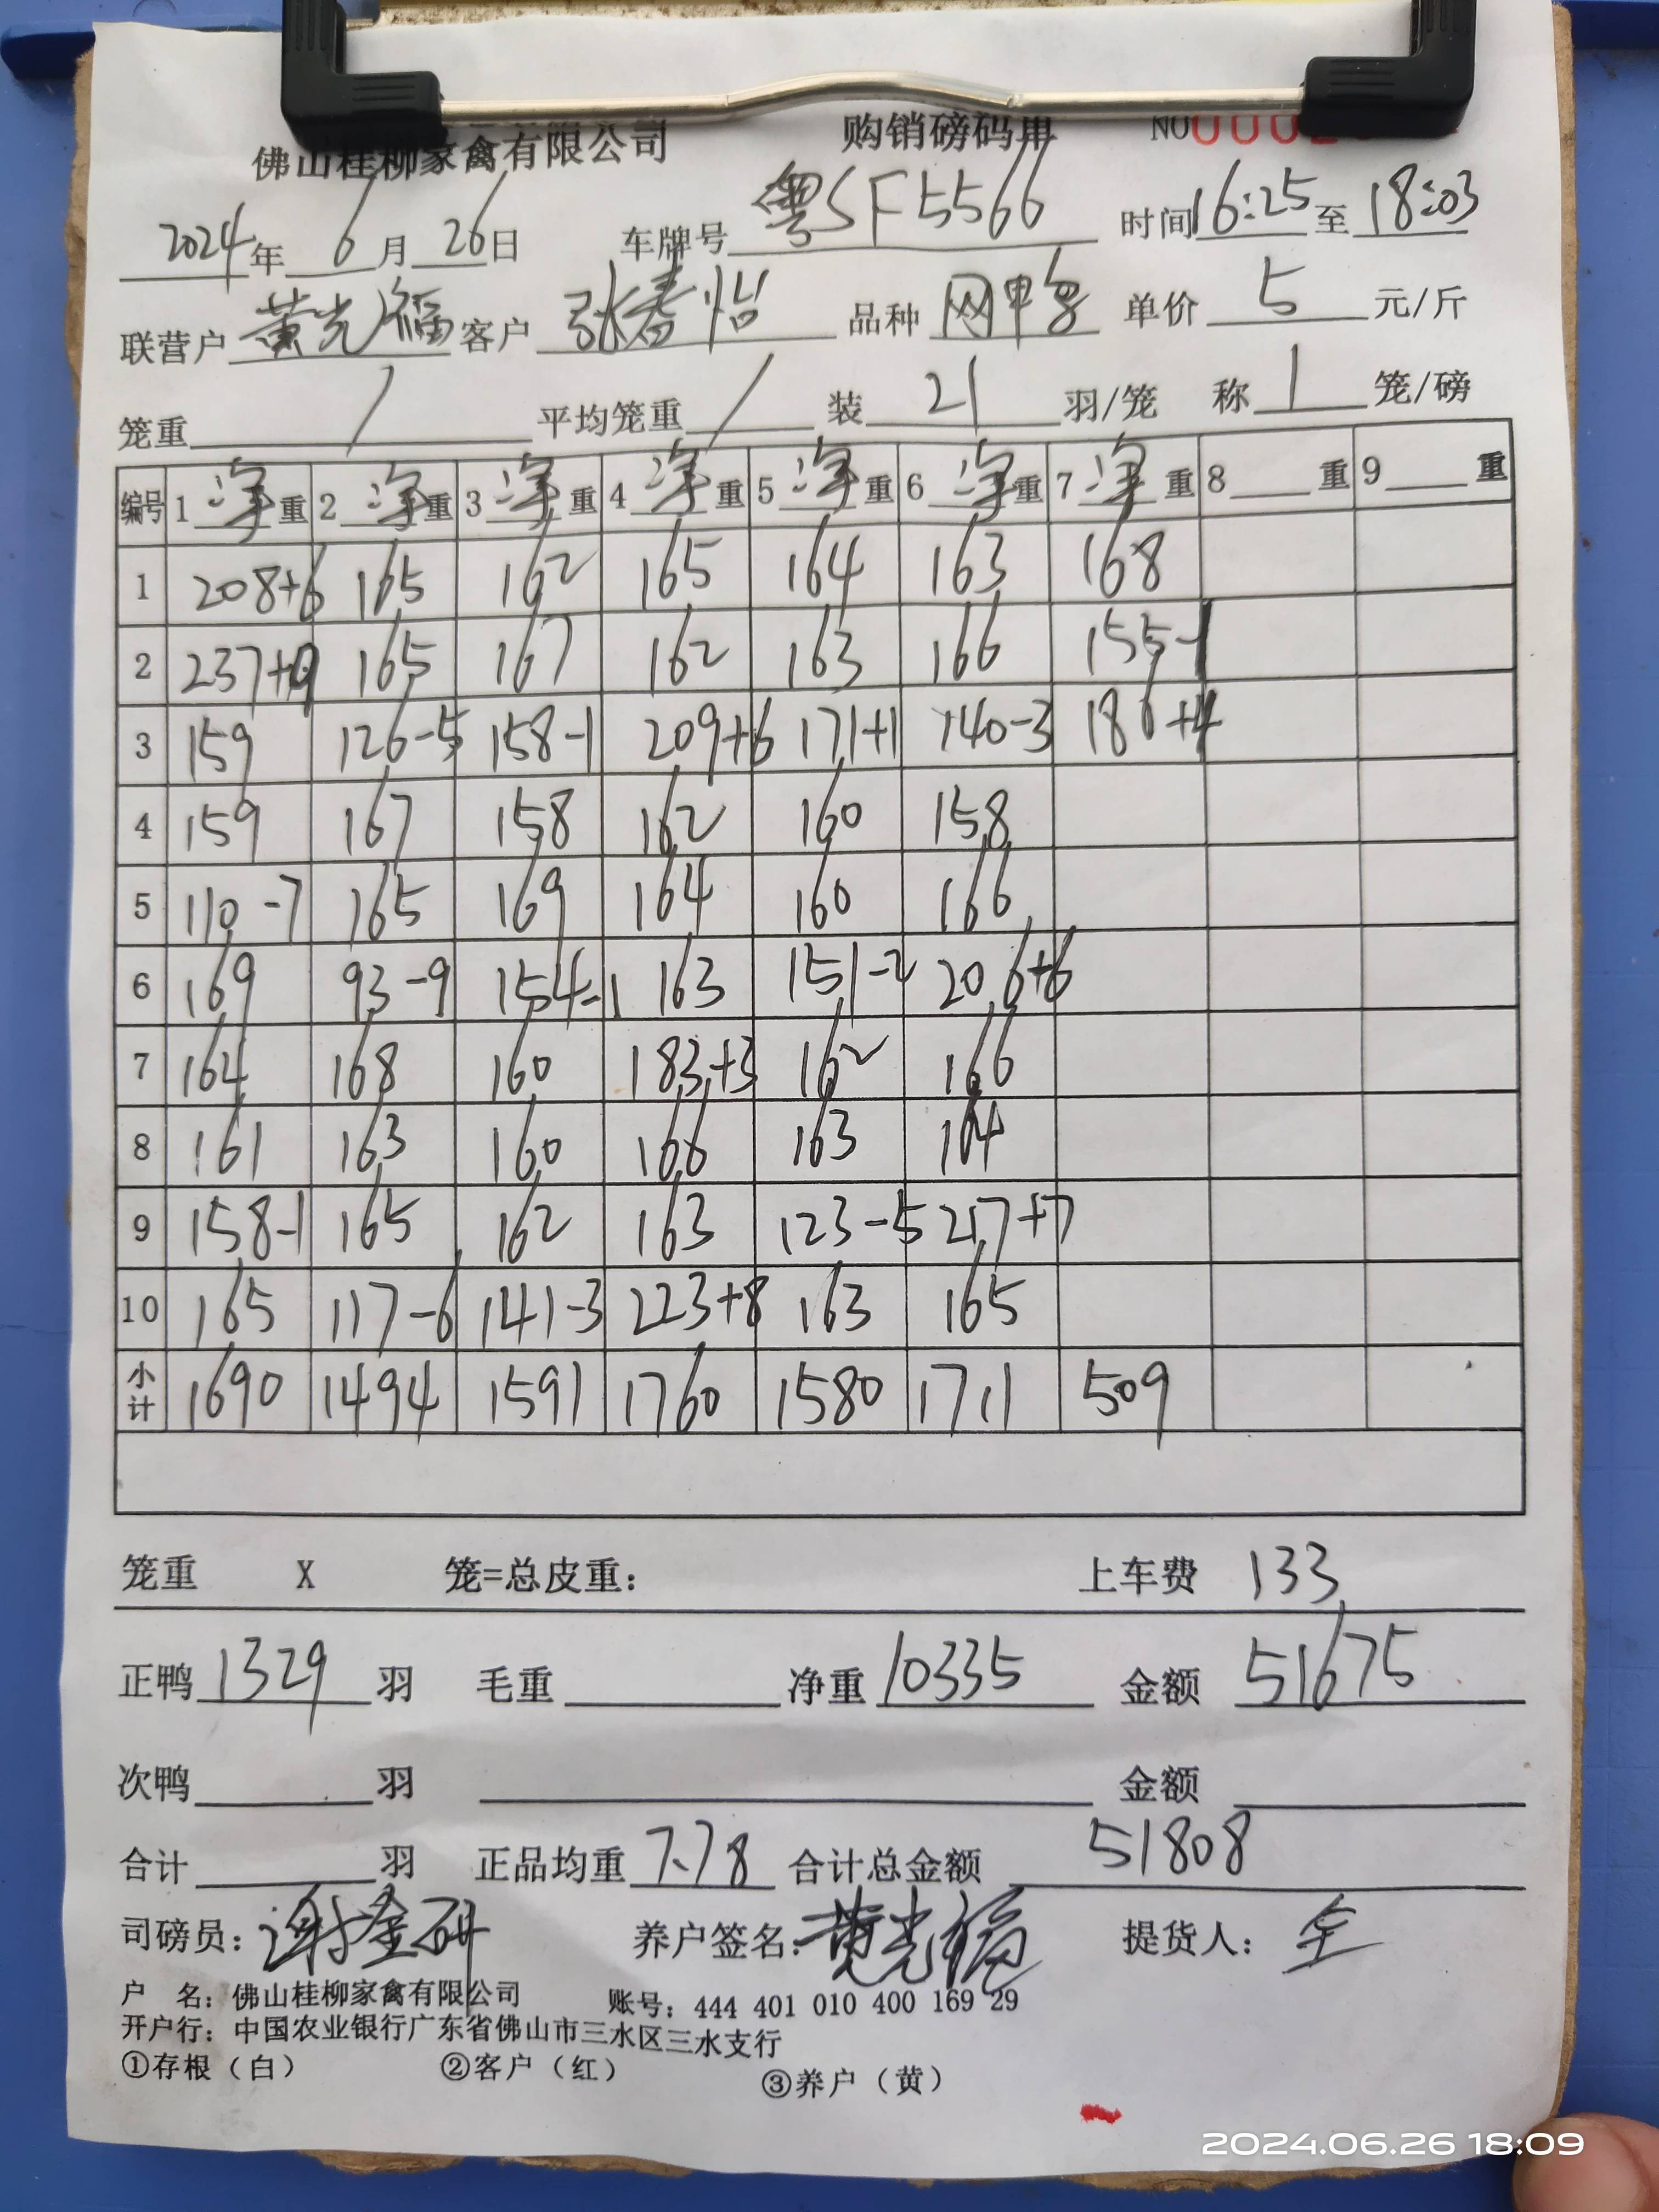 佛山桂柳家禽有限公司 购销磅码单 NO 0002
2024年 6月 26日 车牌号 粤SF5566 时间 16:25 至 18:03
联营户 黄光福 客户 张春怡 品种 单价 5 元/斤
笼重 / 平均笼重 / 装 21 羽/笼 称 1 笼/磅
编号 1 净 重 2 净 重 3 净 重 4 净 重 5 净 重 6 净 重 7 净 重 8 重 9 重
1 208+6 165 162 165 164 163 168
2 237+9 165 167 162 163 166 155-1
3 159 126-5 158-1 209+6 171+1 140-3 186+4
4 159 167 158 162 160 158
5 110-7 165 169 164 160 166
6 169 93-9 154-1 163 151-2 206+6
7 164 168 160 183+3 162 166
8 161 163 160 166 163 164
9 158-1 165 162 163 123-5 217+7
10 165 117-6 141-3 223+8 163 165
小计 1690 1494 1591 1760 1580 1711 509
笼重 X 笼=总皮重: 上车费 133
正鸭 1329 羽 毛重 净重 10335 金额 51675
次鸭 羽 金额
合计 羽 正品均重 7.78 合计总金额 51808
司磅员: 养户签名: 黄光福 提货人: 全
户 名: 佛山桂柳家禽有限公司 账号: 444 401 010 400 169 29
开户行: 中国农业银行广东省佛山市三水区三水支行
①存根（白） ②客户（红） ③养户（黄）
2024.06.26 18:09